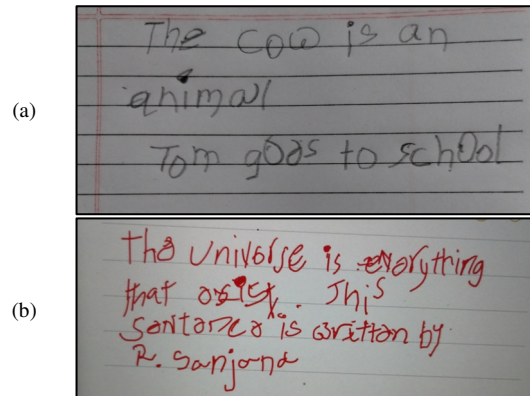 (a)
The cow is an
animal
Tom goas to school
(b)
The universe is everything
that exist. This
santance is written by
R. Sanjana